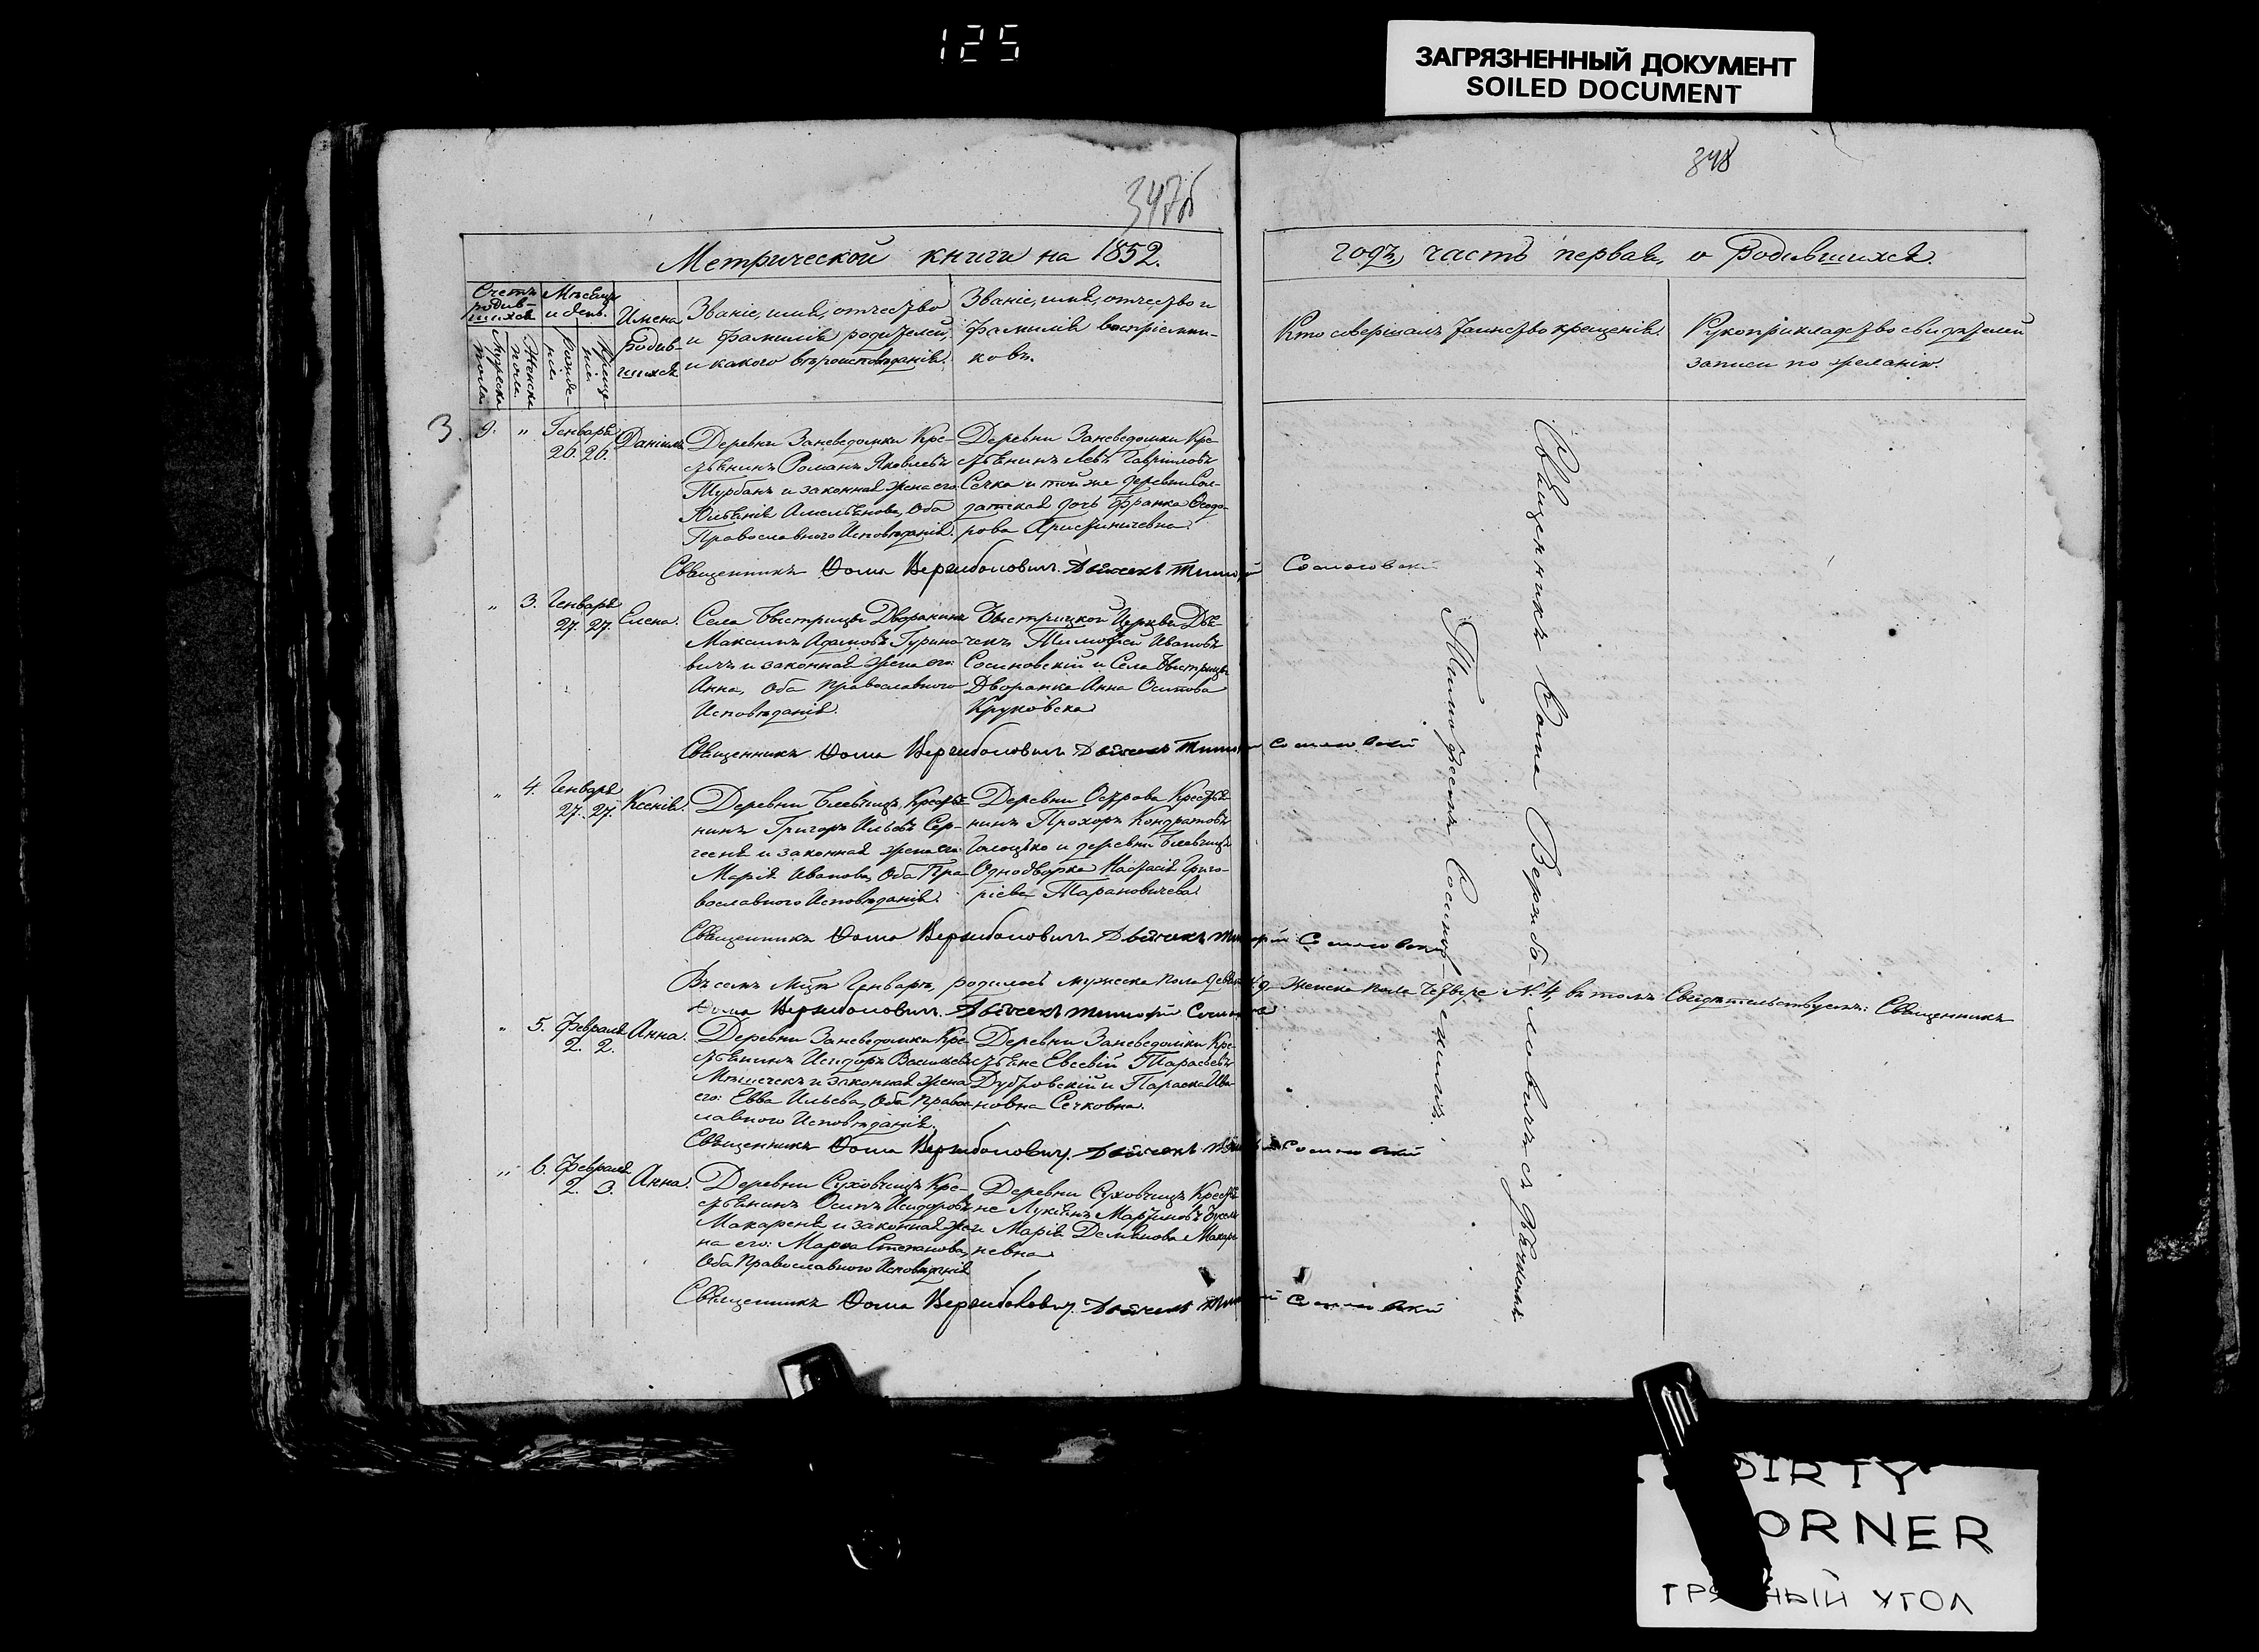 125
ЗАГРЯЗНЕННЫЙ ДОКУМЕНТ
SOILED DOCUMENT
347б
348
Метрической книги на 1852.
годъ, часть первая, о Родившихся.
Счетъ родив-шихся
Мѣсяцъ и день.
Мужеска пола.
Женска пола.
Рожде-нія.
Креще-нія.
Имена
Родив-
шихся
Званіе, имя, отчество
и фамилія родителей,
и какого вѣроисповѣданія.
Званіе, имя, отчество и
фамилія воспріемни-
ковъ.
Кто совершалъ таинство крещенія.
Рукоприкладство свидѣтелей
записи по желанію.
3.
9. „ Генваря 26. 26. Даніилъ
Деревни Заневедомки Кре-
стьянинъ Романъ Яковлевъ
Турбанъ и законная жена его
Амельянова, Оба
Православного Исповѣданія.
Деревни Заневедомки Кре-
стьянинъ Левъ Гавриловъ
Сечка и той же деревни Сол-
датская дочь Франка Ѳеодо-
рова
Священникъ Ѳома Вержболовичъ Дьячекъ Тимофей Сосиновский
„ 3. Генваря 27. 27. Елена.
Села Быстрицы Дворянинъ
Максимъ Адамовъ Гурино-
вичъ и законная жена его:
Анна, Оба православного
Исповѣданія.
Быстрицкой Церкви Дья-
чекъ Тимофей Ивановъ
Сосиновскій и Села Быстрицы
Дворянка Анна Осипова
Круковска
Священникъ Ѳома Вержболовичъ Дьячекъ Тимофей Сосиновский
„ 4. Генваря 27. 27. Ксенія.
Деревни Крестья-
нинъ Григоръ Ильевъ Сер-
геени и законная жена его:
Марія Иванова, Оба Пра-
вославного Исповѣданія.
Деревни Острова Крестья-
нинъ Прохоръ Кондратовъ
и деревни
Однодворка Настасія Григо-
ріева Тарановичева
Священникъ Ѳома Вержболовичъ Дьячекъ Тимофей Сосиновский
Въ семъ Мцѣ Генварѣ, родилось мужеска пола девять N. 9. Женска пола Четыре N. 4, въ томъ Свидѣтельствуемъ: Священникъ
Ѳома Вержболовичъ. Дьячекъ Тимофей
„ 5. Февраля 2. 2. Анна.
Деревни Заневедомки Кре-
стьянинъ Исидоръ Васильевъ
и законная жена
его: Евва Ильева, Оба Правос-
лавного Исповѣданія.
Деревни Заневедомки Кре-
стьяне Евсевій Тарасьевъ
Дубровскій и Параска Ива-
новна Сечковна.
Священникъ Ѳома Вержболовичъ. Дьячекъ Тимофей Сосиновский
„ 6. Февраля 2. 3. Анна.
Деревни Суховчицъ Кре-
стьянинъ Осипъ Исидоровъ
Макареня и законная же-
на его: Марѳа Степанова,
Оба Православного Исповѣданія
Деревни Суховчицъ Крестья-
не Лукьянъ Мартиновъ
и Марія Демянова Макаре-
невна
Священникъ Ѳома Вержболовичъ. Дьячекъ Тимофей Сосиновский
Священникъ Ѳома Вержбо-ловичъ съ дьячкомъ
Тимофеемъ Сосинов-скимъ.
DIRTY
CORNER
ГРЯЗНЫЙ УГОЛ